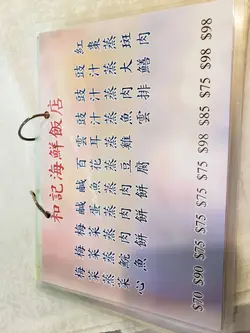 和記海鮮飯店
紅棗蒸斑肉 $98
豉汁蒸大鱔 $98
豉汁蒸肉排 $75
豉汁蒸魚雲 $85
雲耳蒸雞 $98
百花蒸豆腐 $75
鹹魚蒸肉餅 $75
鹹蛋蒸肉餅 $75
梅菜蒸肉餅 $75
梅菜蒸鯇魚 $90
梅菜蒸菜心 $70